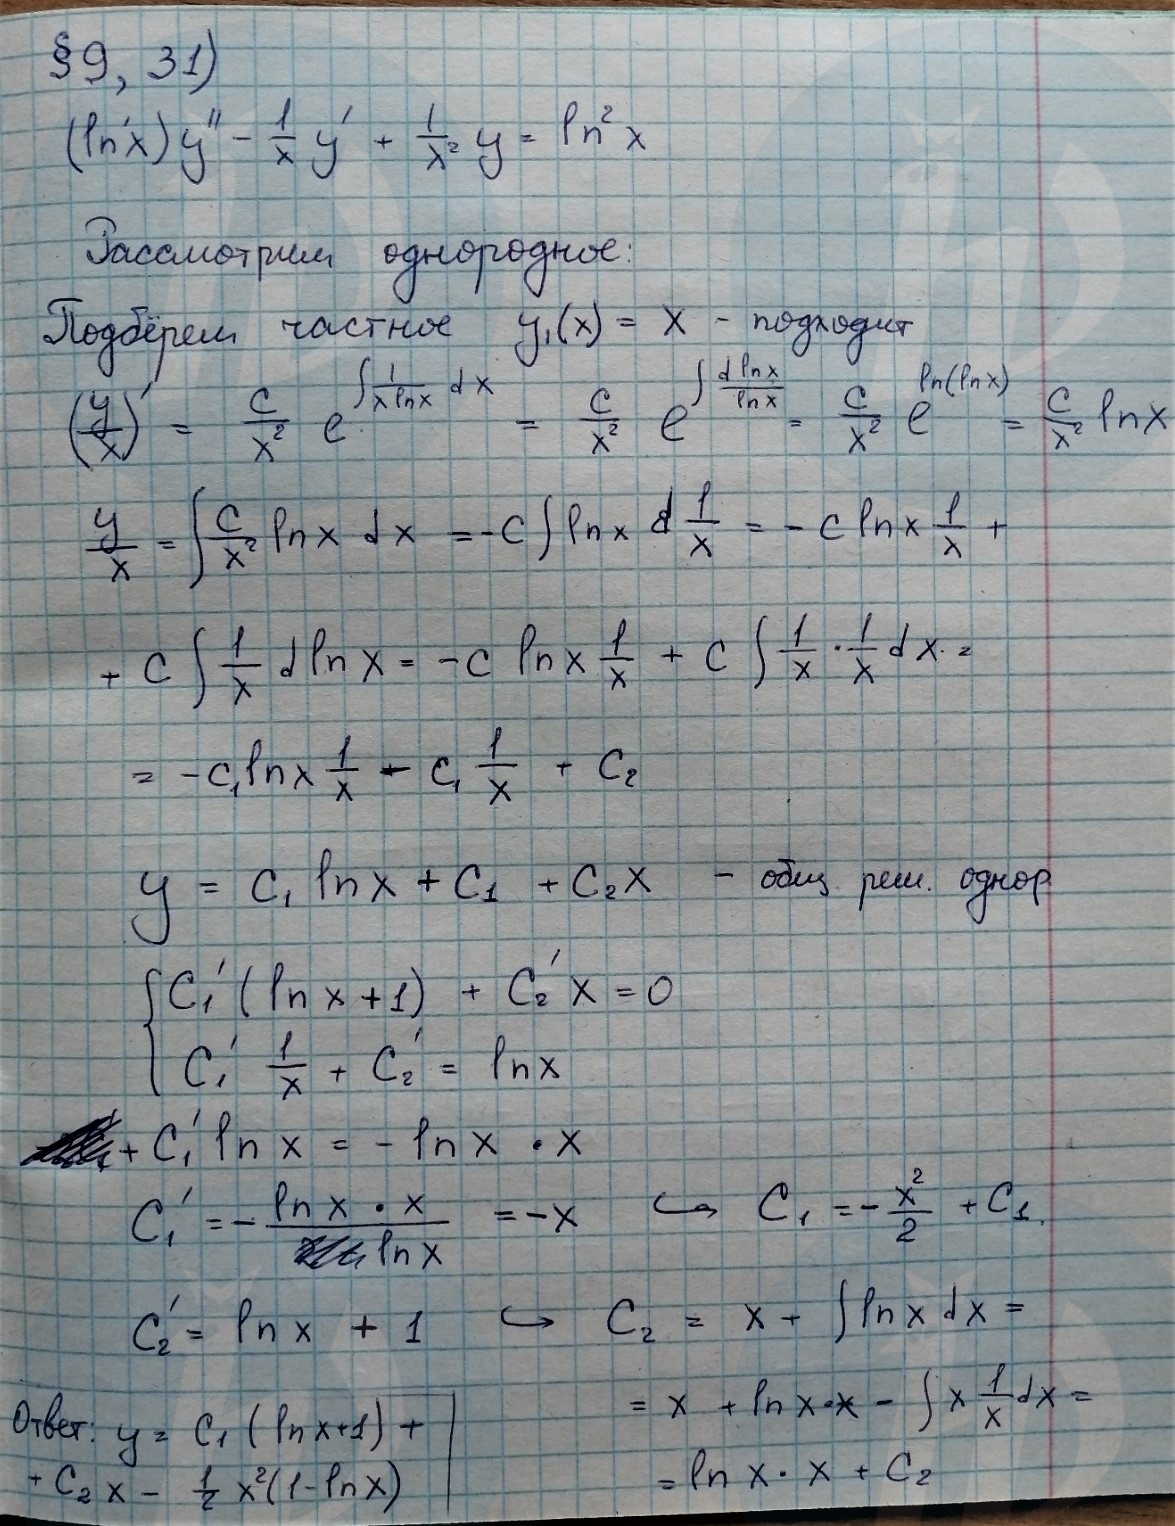 §9, 31)
(ln x) y'' - 1/x y' + 1/x² y = ln² x
Рассмотрим однородное:
Подберём частное y₁(x) = x - подходит
(y/x)' = C/x² e^{∫ 1/(x ln x) dx} = C/x² e^{∫ d ln x/ln x} = C/x² e^{ln(ln x)} = C/x² ln x
y/x = ∫ C/x² ln x dx = -C ∫ ln x d 1/x = -C ln x 1/x +
+ C ∫ 1/x d ln x = -C ln x 1/x + C ∫ 1/x · 1/x dx =
= -C₁ ln x 1/x - C₁ 1/x + C₂
y = C₁ ln x + C₁ + C₂ x - общ. реш. однор
{ C₁' (ln x + 1) + C₂' x = 0
C₁' 1/x + C₂' = ln x
+ C₁' ln x = - ln x · x
C₁' = - (ln x · x)/(ln x) = -x ↪ C₁ = - x²/2 + C₁.
C₂' = ln x + 1 ↪ C₂ = x + ∫ ln x dx =
= x + ln x · x - ∫ x 1/x dx =
= ln x · x + C₂
Ответ: y = C₁ (ln x + 1) +
+ C₂ x - 1/2 x² (1 - ln x)